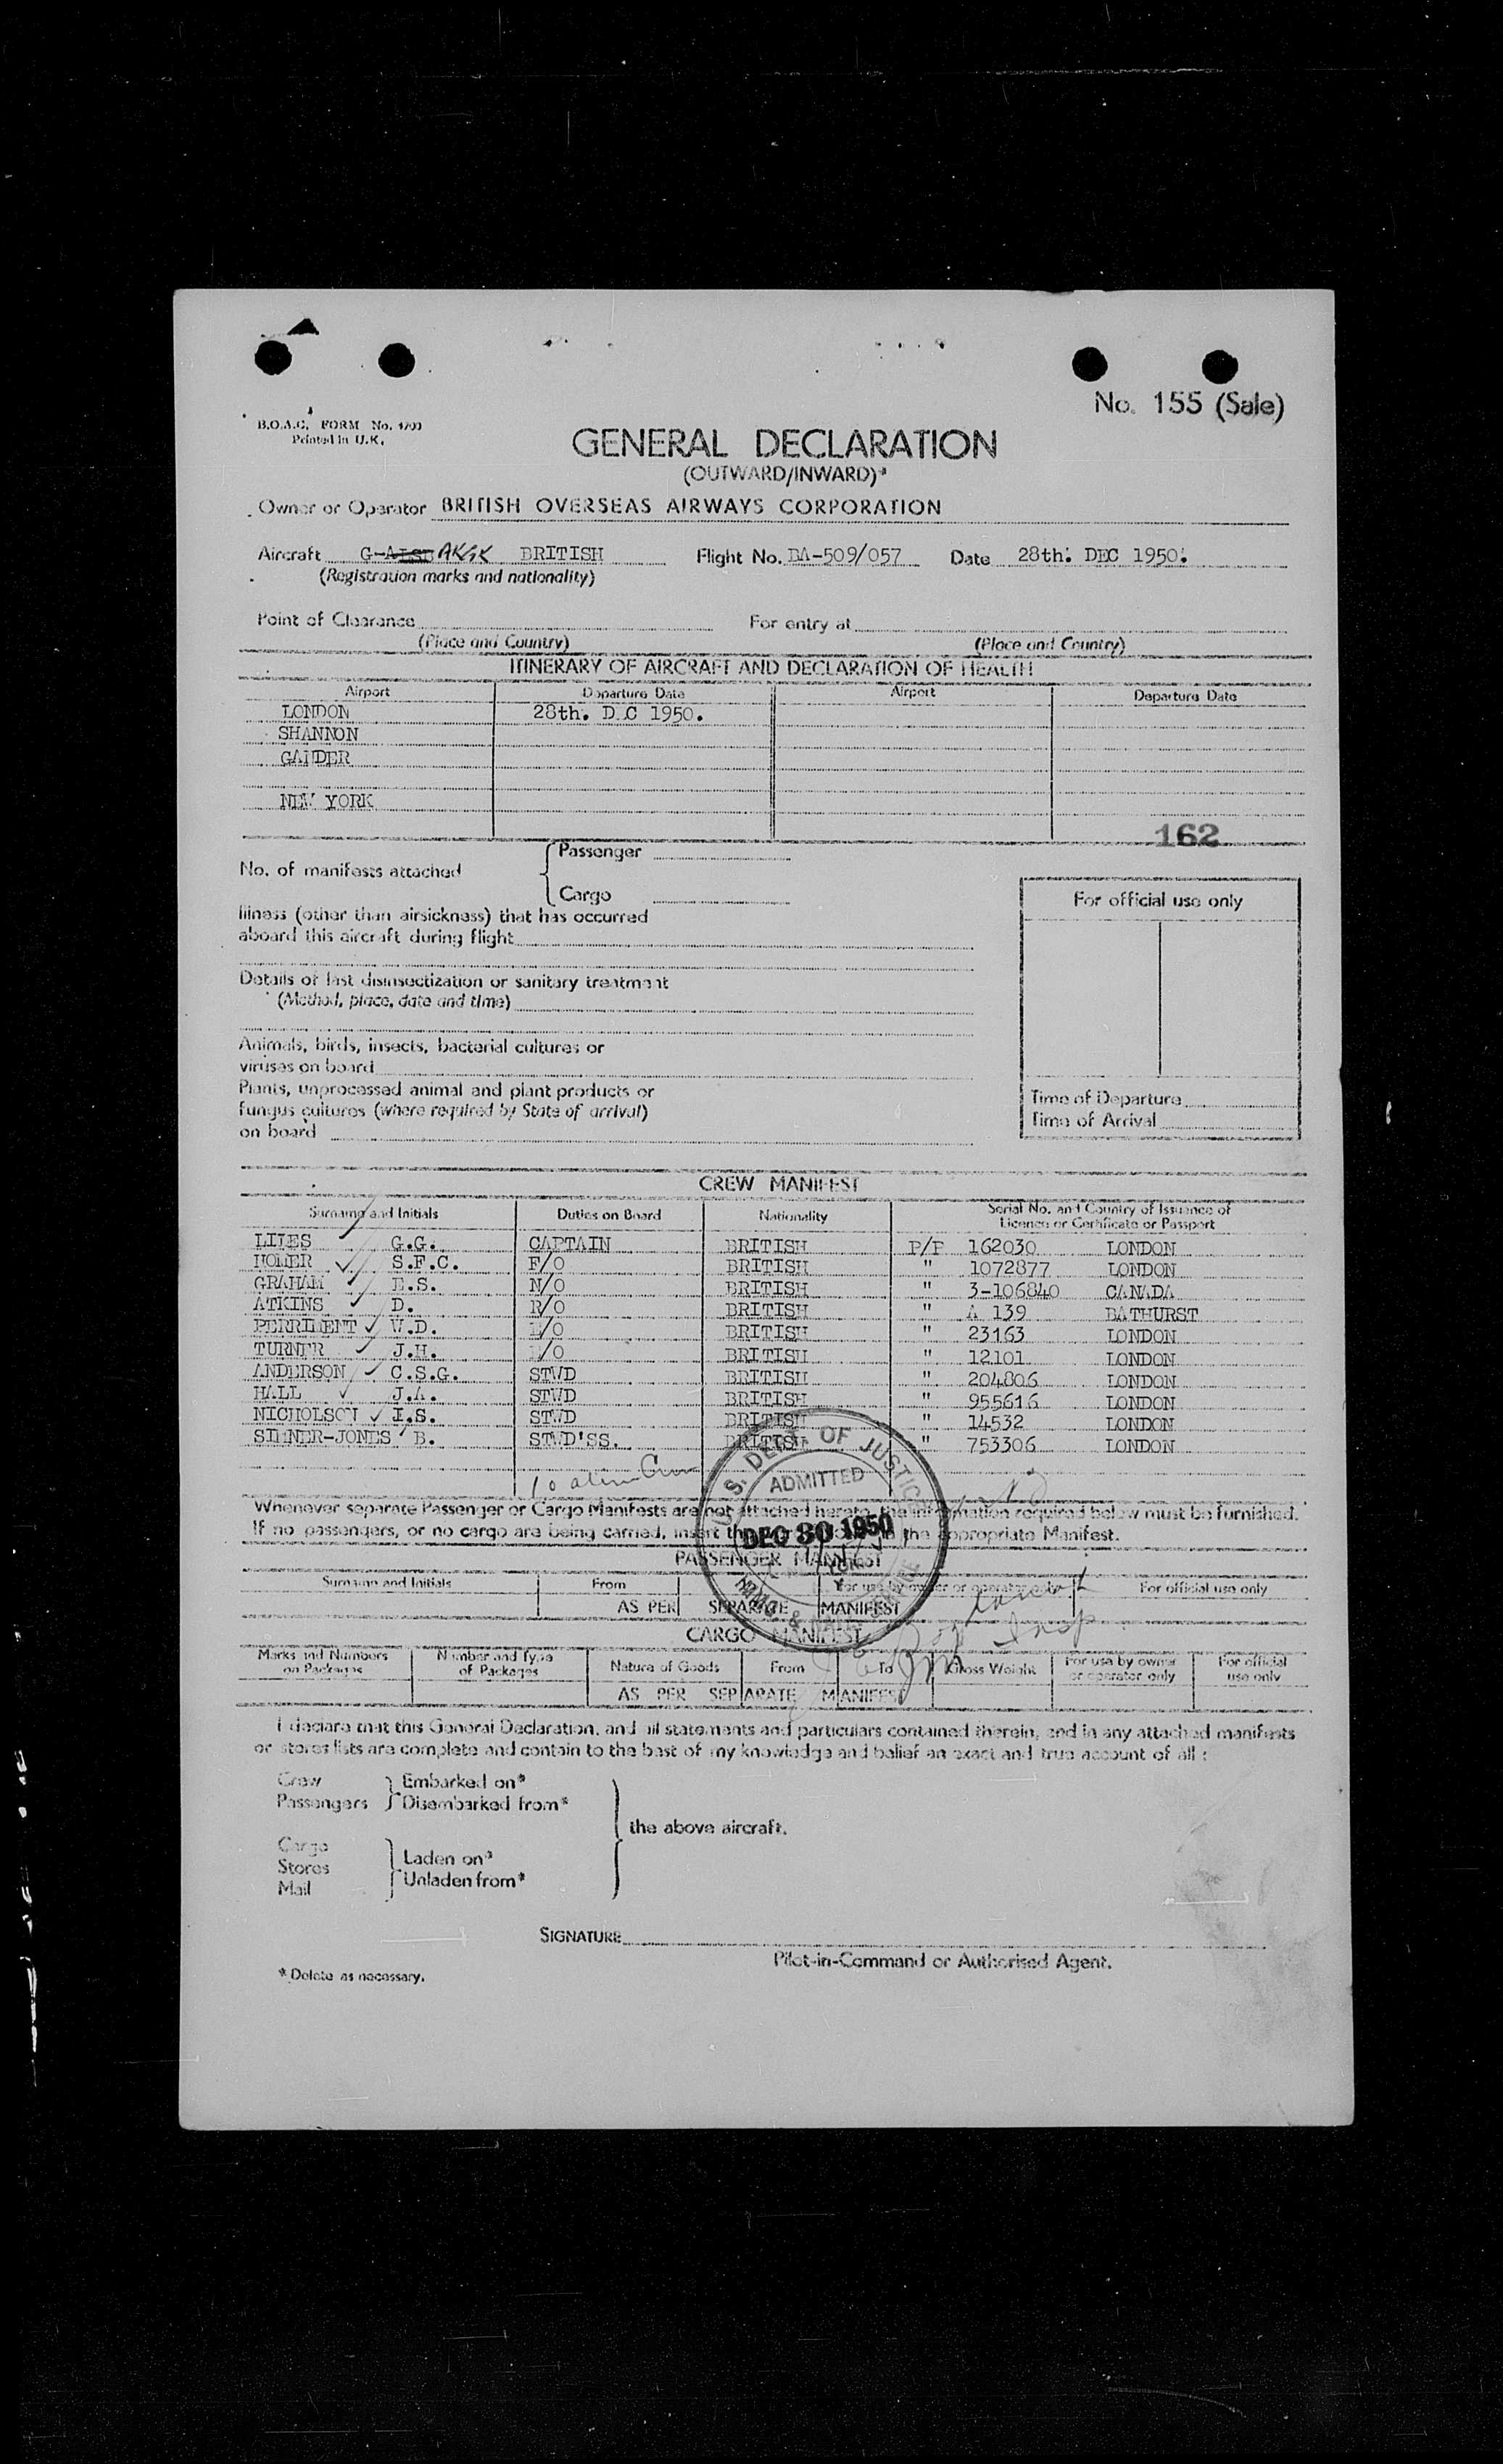 No. 155 (Sale)
B.O.A.C. FORM No.
Printed in U.K.
GENERAL DECLARATION
(OUTWARD/INWARD)*
Owner or Operator BRITISH OVERSEAS AIRWAYS CORPORATION
Aircraft G- AKGK BRITISH Flight No. BA-509/057 Date 28th. DEC 1950.
(Registration marks and nationality)
Point of Clearance For entry at
(Place and Country) (Place and Country)
ITINERARY OF AIRCRAFT AND DECLARATION OF HEALTH
Airport Departure Date Airport Departure Date
LONDON 28th. D.C 1950.
SHANNON
GANDER
NEW YORK
162
No. of manifests attached { Passenger
Cargo
For official use only
Illness (other than airsickness) that has occurred
aboard this aircraft during flight
Details of last disinsectization or sanitary treatment
(Method, place, date and time)
Animals, birds, insects, bacterial cultures or
viruses on board
Plants, unprocessed animal and plant products or
fungus cultures (where required by State of arrival)
on board
Time of Departure
Time of Arrival
CREW MANIFEST
Surname and Initials Duties on Board Nationality Serial No. and Country of Issuance of
Licence or Certificate or Passport
G.G. CAPTAIN BRITISH P/P 162030 LONDON
S.F.C. F/O BRITISH " 1072877 LONDON
GRAHAM E.S. N/O BRITISH " 3-106840 CANADA
ATKINS D. R/O BRITISH " A 139 BATHURST
PERRIMENT W.D. BRITISH " 23163 LONDON
TURNER J.H. BRITISH " 12101 LONDON
ANDERSON C.S.G. STWD BRITISH " 204806 LONDON
HALL J.A. STWD BRITISH " 955616 LONDON
NICHOLSON I.S. STWD BRITISH " 14532 LONDON
B. STWD'SS. BRITISH " 753306 LONDON
10 alien Crew
U.S. DEPT. OF JUSTICE
ADMITTED
DEC 30 1950
Whenever separate Passenger or Cargo Manifests are not attached hereto, the information required below must be furnished.
If no passengers, or no cargo are being carried, insert the appropriate Manifest.
PASSENGER MANIFEST
Surname and Initials From For use by owner or operator only For official use only
AS PER SEPARATE MANIFEST
CARGO MANIFEST
Marks and Numbers on Packages Number and Type of Packages Nature of Goods From To Gross Weight For use by owner or operator only For official use only
AS PER SEPARATE MANIFEST
I declare that this General Declaration, and all statements and particulars contained therein, and in any attached manifests
or stores lists are complete and contain to the best of my knowledge and belief an exact and true account of all :
Crew } Embarked on*
Passengers } Disembarked from*
the above aircraft.
Cargo
Stores } Laden on*
Mail } Unladen from*
SIGNATURE
Pilot-in-Command or Authorised Agent.
* Delete as necessary.